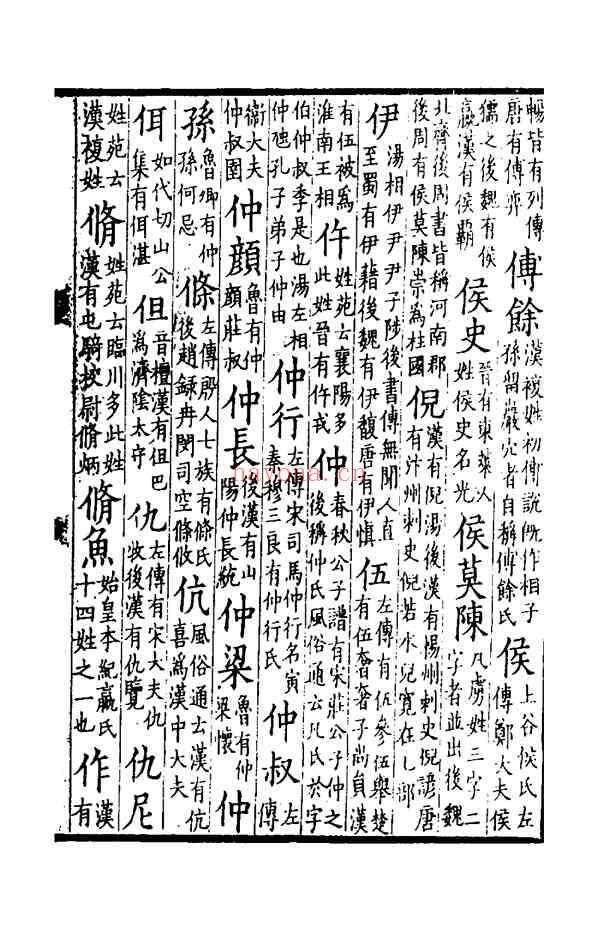 暢皆有列傳唐有傅弈傅餘漢複姓初傅說旣作相子孫留巖穴者自稱傅餘氏侯上谷侯氏左傳鄭大夫侯
獳之後魏有侯嬴漢有侯霸侯史晉有東萊人姓侯史名光侯莫陳凡虜姓三字二字者並出後魏
北齊後周書皆稱河南郡後周有侯莫陳崇爲柱國倪漢有倪湯後漢有揚州刺史倪諺唐有汴州刺史倪若水兒寬在乚部
伊湯相伊尹尹子陟後書傳無聞人直至蜀有伊籍後魏有伊馥唐有伊愼伍左傳有伍參伍舉楚有伍奢奢子尚員漢
有伍被爲淮南王相仵姓苑云襄陽多此姓晉有仵戎仲春秋公子譜有宋莊公子仲之後稱仲氏風俗通云凡氏於字
伯仲叔季是也湯左相仲虺孔子弟子仲由仲行左傳宋司馬仲行名寅秦穆三良有仲行氏仲叔左傳
衛大夫仲叔圉仲顏魯有仲顏莊叔仲長後漢有山陽仲長統仲梁魯有仲梁懷仲
孫魯卿有仲孫何忌條左傳殷人七族有條氏後趙錄冉閔司空條攸伉風俗通云漢有伉喜爲漢中大夫
佴如代切山公集有佴湛但音檀漢有但巴爲濟陰太守仇左傳有宋大夫仇牧後漢有仇覽仇尼
姓苑云漢複姓脩姓苑云臨川多此姓漢有屯騎校尉脩炳脩魚始皇本紀嬴氏十四姓之一也作漢有
nayona.cn